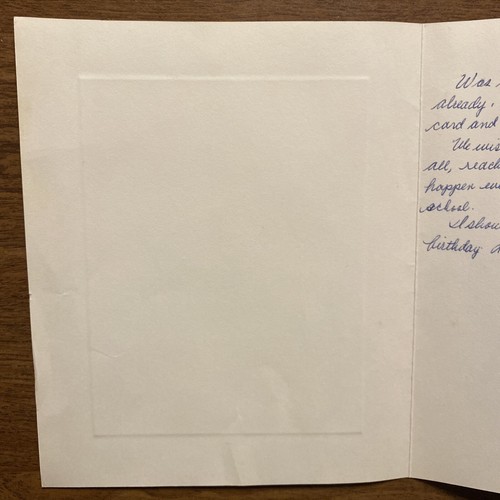 Was
already.
card and
We wis
all, reach
happen eve
school.
I shou
birthday